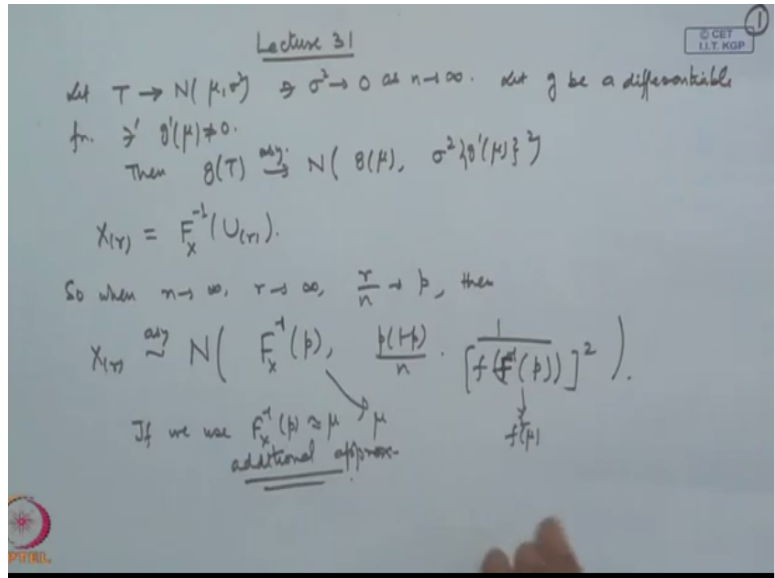 1
© CET
I.I.T. KGP
Lecture 31
Let T → N(μ, σ²) ∋ σ² → 0 as n → ∞. Let g be a differentiable
fn. ∋' g'(μ) ≠ 0.
Then g(T) asy. → N( g(μ), σ² {g'(μ)}² )
X(r) = F_X^{-1}(U(r)).
So when n → ∞, r → ∞, r/n → p, then
X(r) asy ~ N( F_X^{-1}(p), p(1-p)/n · 1/[f(F^{-1}(p))]² ).
If we use F_X^{-1}(p) ≈ μ μ f(μ)
additional approx.
PTEL